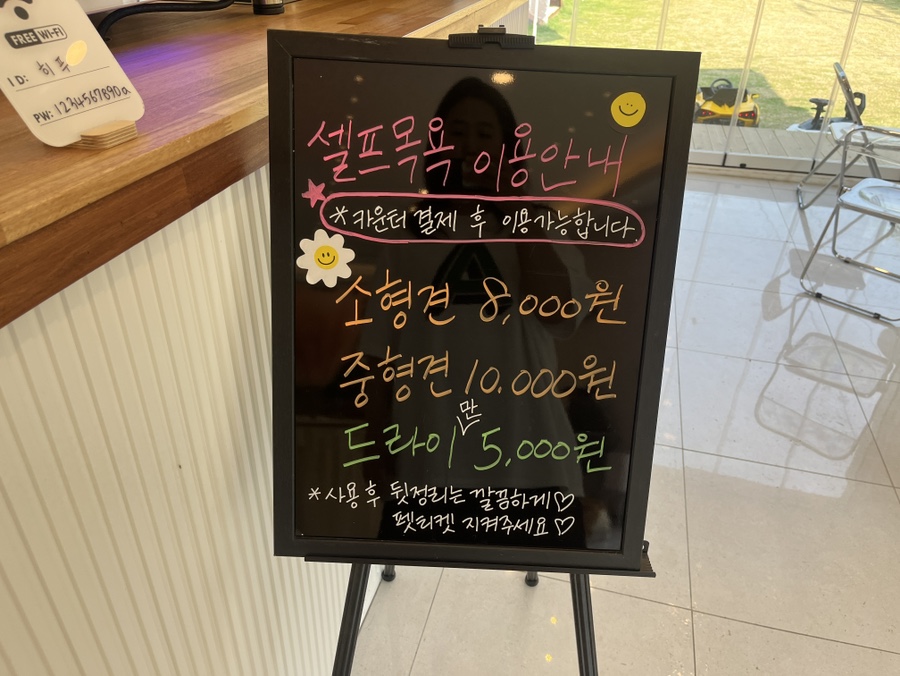 FREE Wi-Fi
ID: 히푸
PW: 1234567890a
셀프목욕 이용안내
*카운터 결제 후 이용가능합니다.
소형견 8,000원
중형견 10.000원
만
드라이 5,000원
*사용 후 뒷정리는 깔끔하게♡
펫티켓 지켜주세요♡